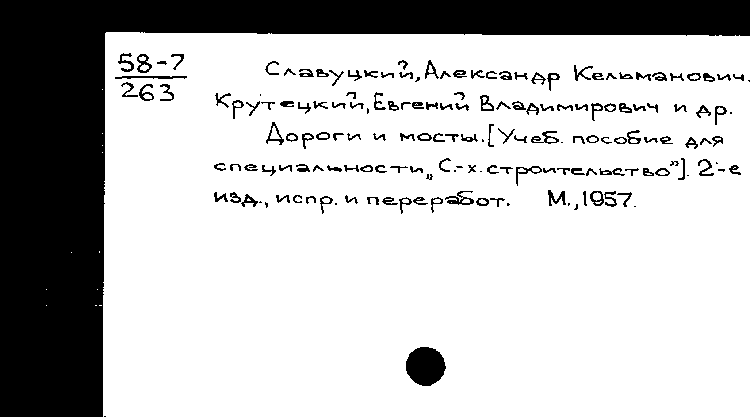 58-7
263
Славуцкий, Александр Кельманович.
Крутецкий, Евгений Владимирович и др.
Дороги и мосты. [Учеб. пособие для
специальности „С.-х. строительство”]. 2-е
изд., испр. и переработ. М., 1957.